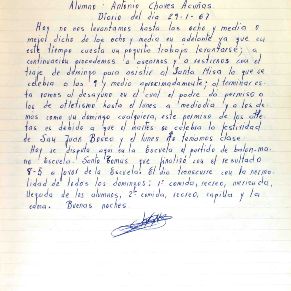 Alumno: Antonio Chaves Acuñas
Diario del dia 29-1-67
Hoy no nos levantamos hasta las ocho y media o
mejor dicho de las ocho y media en adelante ya que en
este tiempo cuesta un poquito trabajo levantarse; a
continuación procedemos a asearnos y a vestirnos con el
traje de domingo para asistir al Santa Misa la que se
celebra a las 9 y media aproximadamente; al terminar es-
ta vamos al desayuno en el cual el padre da permiso a
los de atletismo hasta el lunes a mediodia y a los de-
mas como un domingo cualquiera, este permiso de los atle-
tas es debido a que el martes se celebra la festividad
de San Juan Bosco y el lunes no tenemos clase.
Hoy se disputa aqui en la Escuela el partido de balon-ma-
no Escuela Santo Tomas que finalizó con el resultado
8-5 a favor de la Escuela. El dia transcurre con la norma-
lidad de todos los domingos: 1ª comida, recreo, merienda,
llegada de los alumnos, 2ª comida, recreo, capilla y la
cama. Buenas noches